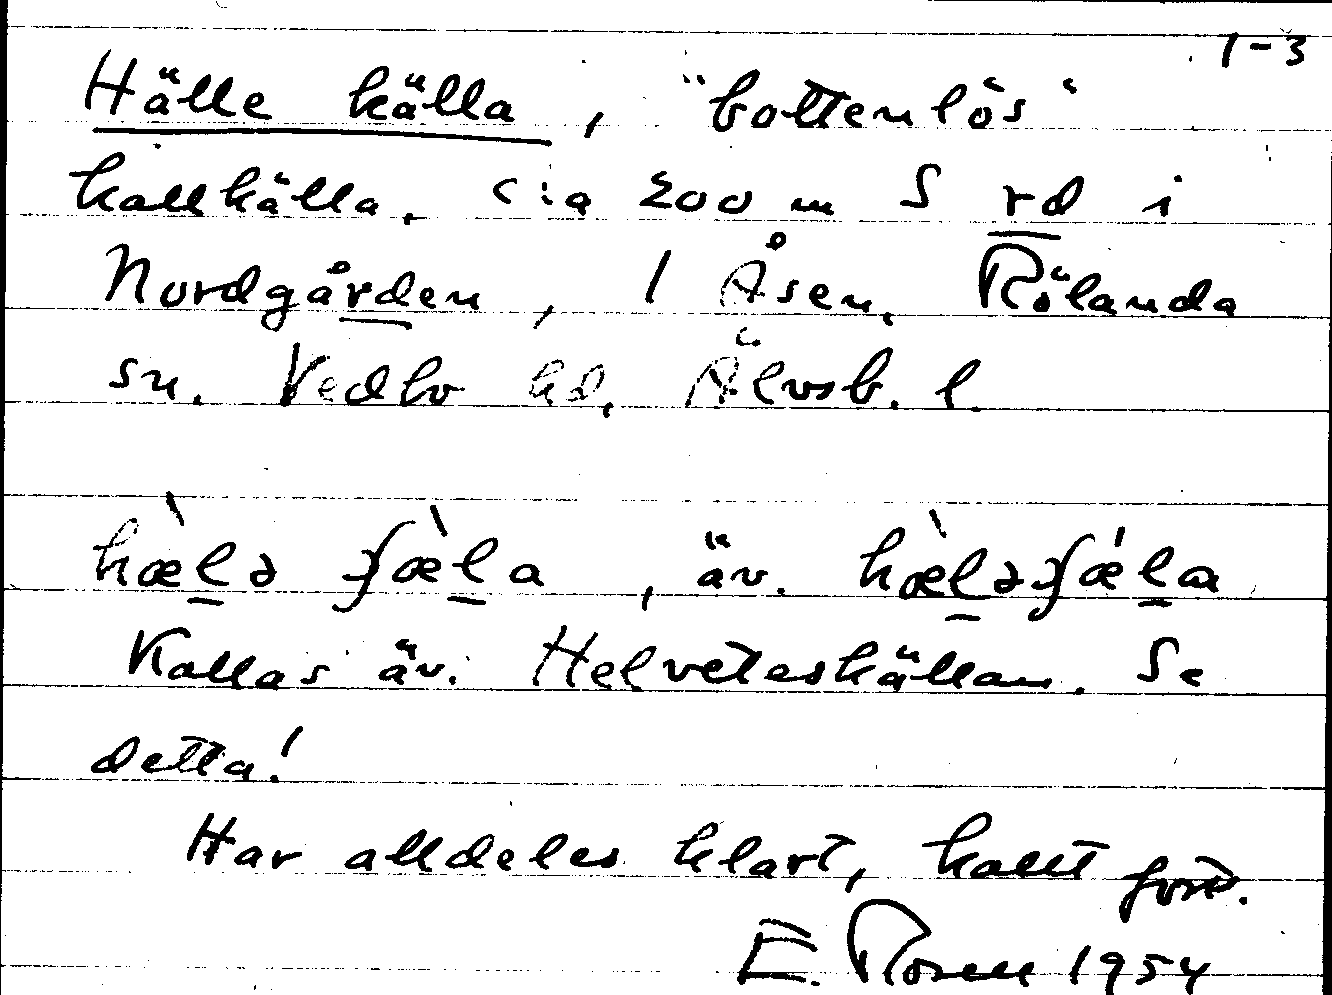 1-3
Hälle källa, "bottenlös"
kallkälla, c:a 200 m S rd i
Nordgården, 1 Åsen, Rölanda
sn. Vedbo hd, Älvsb. l.
hæ̀lə fæ̀la, äv. hæ̀ləfǽla
Kallas äv. Helveteskällan. Se
detta!
Har alldeles klart, kallt
E. Rosell 1954